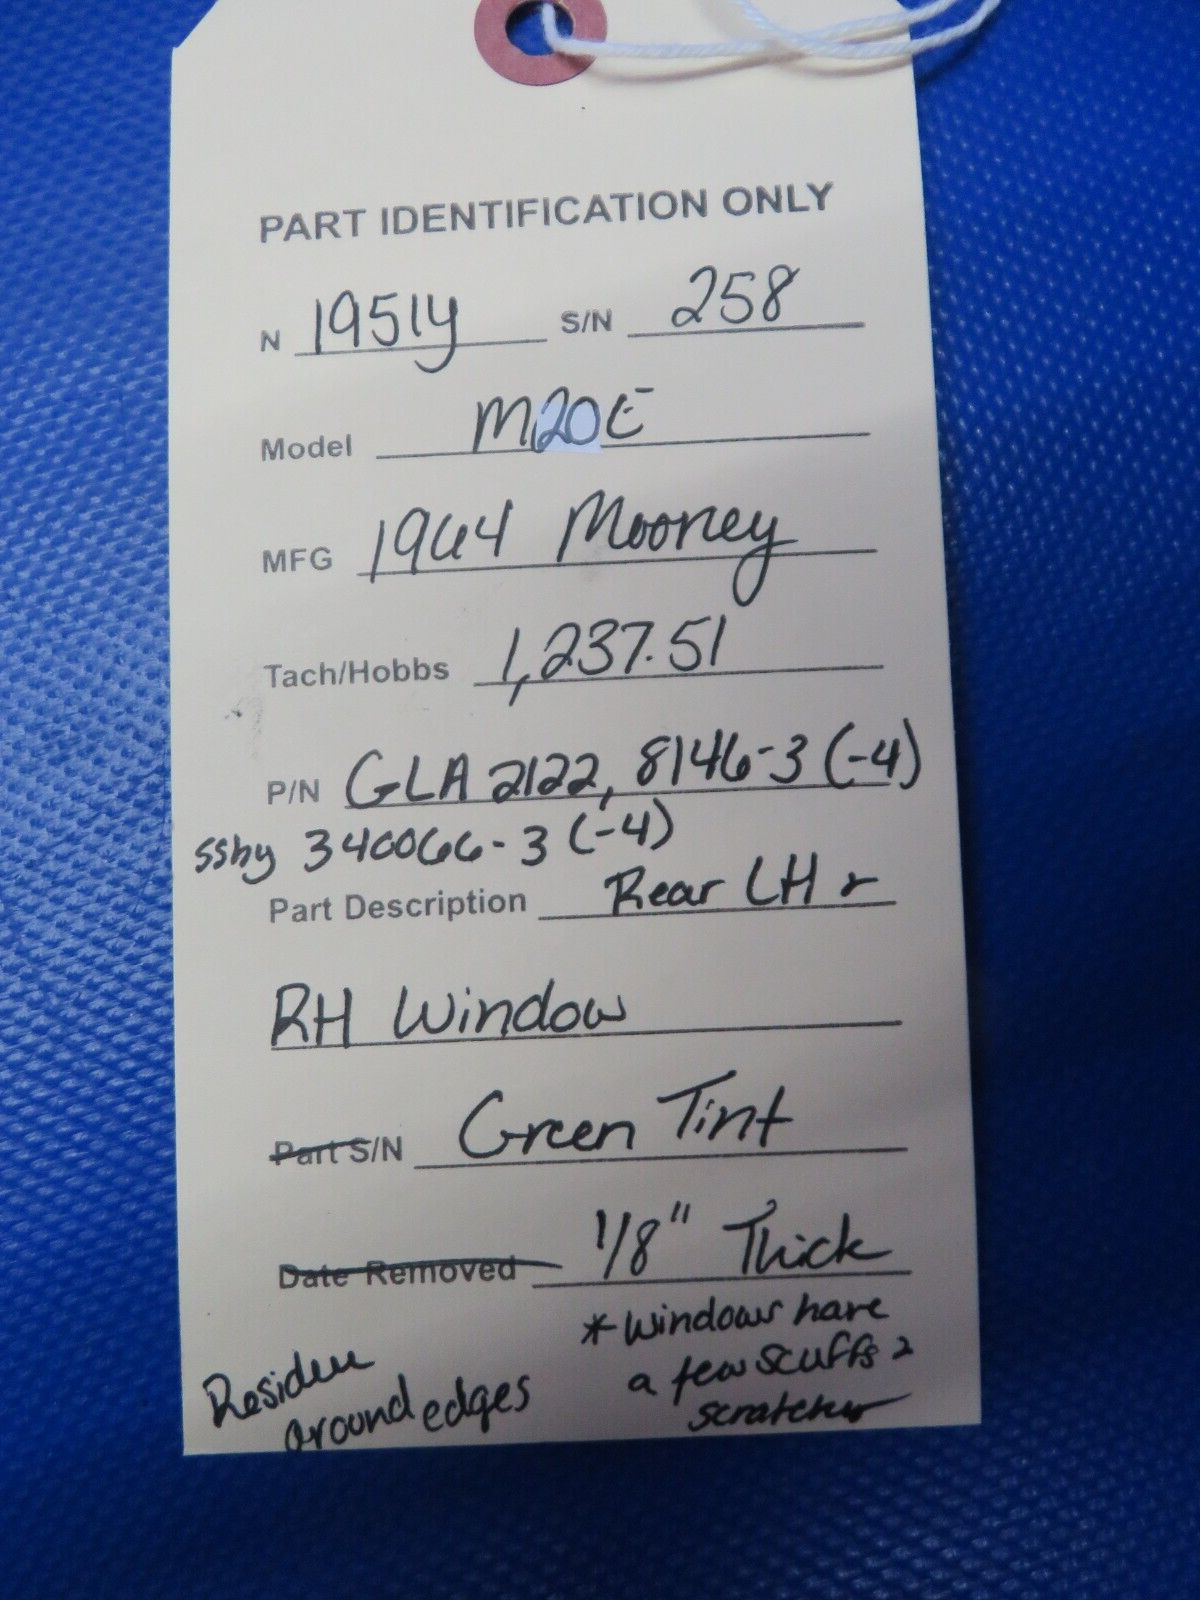 PART IDENTIFICATION ONLY
N 1951y S/N 258
Model M20E
MFG 1964 Mooney
Tach/Hobbs 1,237.51
P/N GLA 2122, 8146-3 (-4)
ssby 340066-3 (-4)
Part Description Rear LH &
RH Window
Part S/N Green Tint
Date Removed 1/8" Thick
* Windows have
a few scuffs &
scratches
Residue
around edges